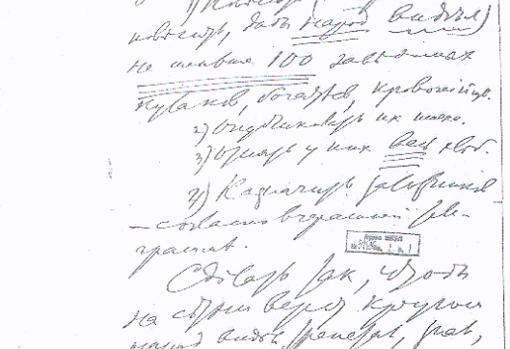 1) Повесить
повесить, дабы народ видел)
не меньше 100 заведомых
кулаков, богатеев, кровопийц.
2) Опубликовать их имена.
3) Отнять у них весь хлеб.
4) Назначить заложников
– согласно вчерашней теле-
грамме.
Сделать так, чтобы
на сотни верст кругом
народ видел, трепетал, знал,